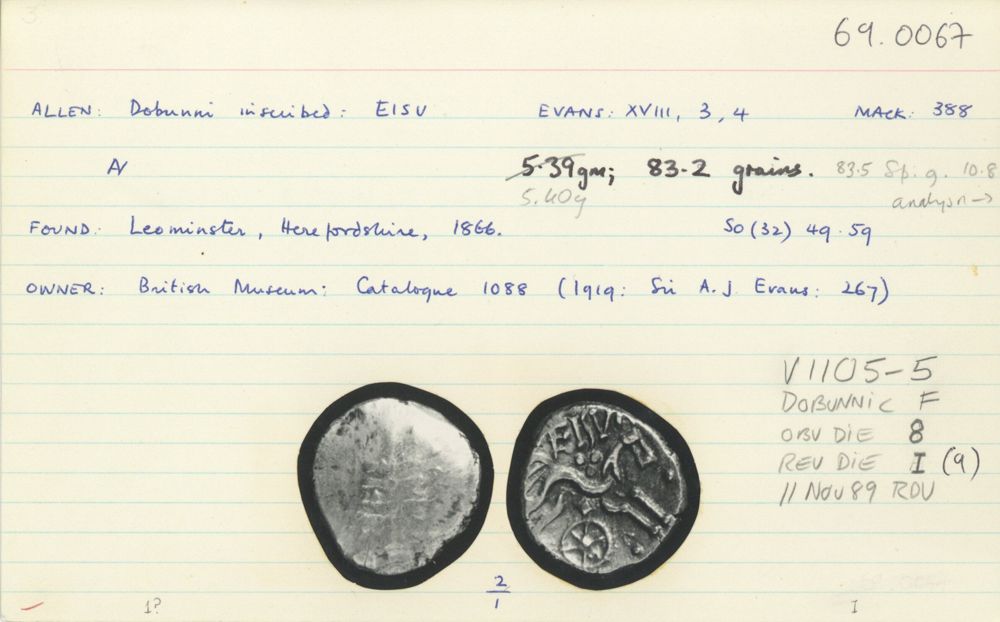 69.0067
ALLEN: Dobunni inscribed: EISU EVANS: XVIII, 3, 4 MACK: 388
5.39gm; 83.2 grains. 83.5 Sp. g. 10.8
5.40g analysn →
FOUND: Leominster, Herefordshire, 1866. SO (32) 49.59
OWNER: British Museum: Catalogue 1088 (1919: Sir A.J. Evans: 267)
V1105-5
DOBUNNIC F
OBV DIE 8
REV DIE I (9)
11 NOV 89 RDV
EISV
2
1
1? I